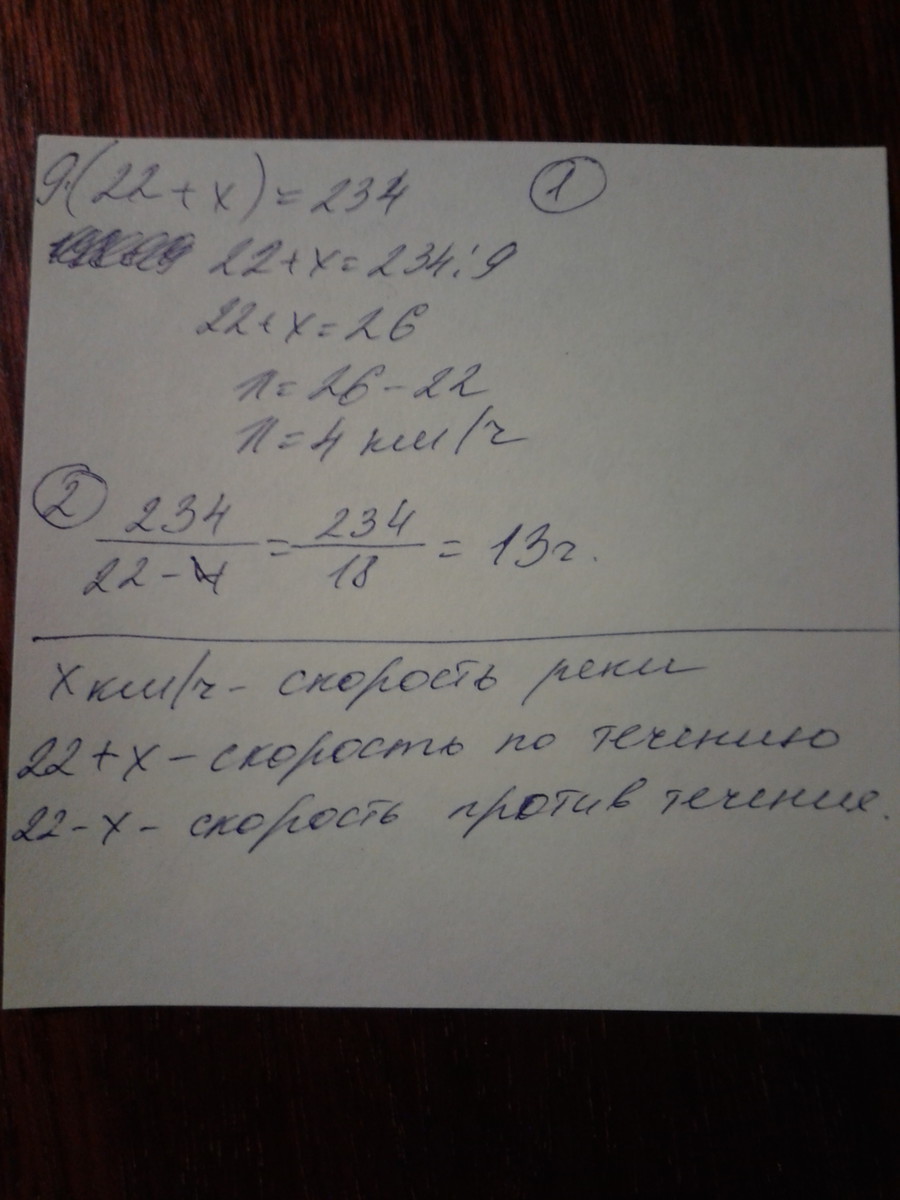 9·(22+x)=234 ①
22+x=234:9
22+x=26
п=26-22
п=4 км/ч
② 234/22-4 = 234/18 = 13ч.
x км/ч - скорость реки
22+x - скорость по течению
22-x - скорость против течение.